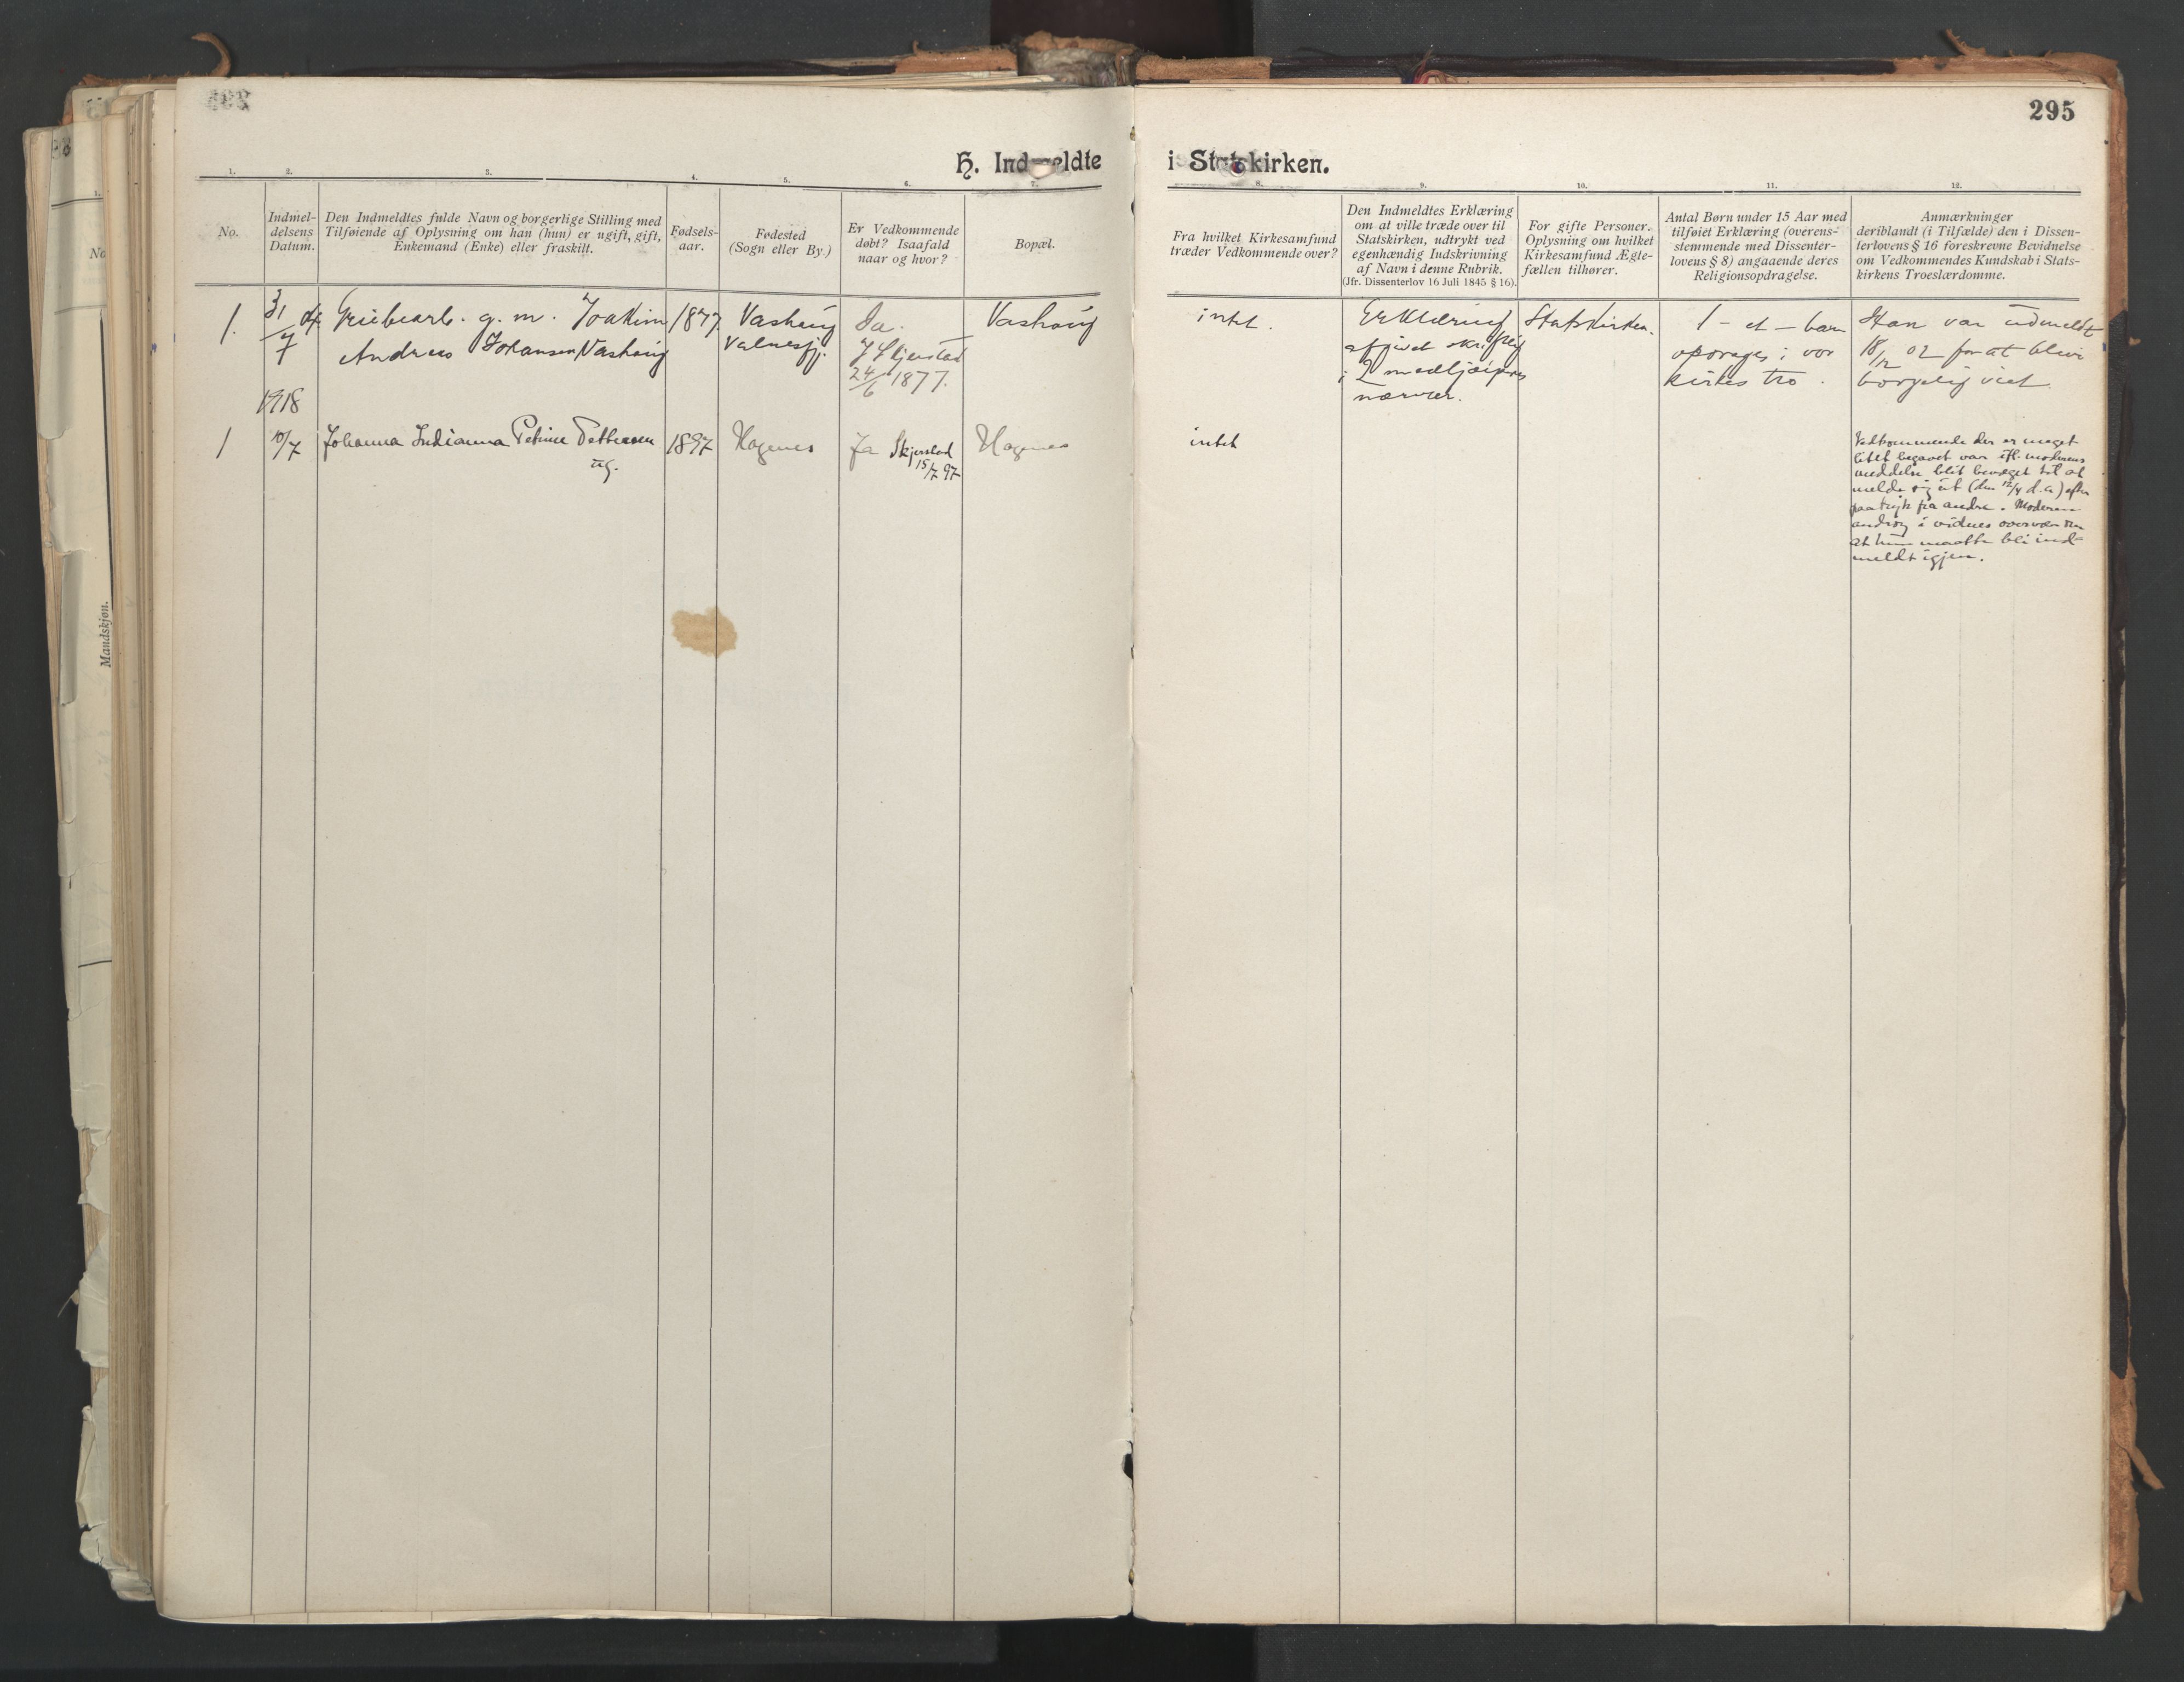 295
H. Indmeldte i Statskirken.
1. 2. 3. 4. 5. 6. 7. 8. 9. 10. 11. 12.
No.
Indmel-
delsens
Datum.
Den Indmeldtes fulde Navn og borgerlige Stilling med
Tilføiende af Oplysning om han (hun) er ugift, gift,
Enkemand (Enke) eller fraskilt.
Fødsels-
aar.
Fødested
(Sogn eller By.)
Er Vedkommende
døbt? Isaafald
naar og hvor?
Bopæl.
Fra hvilket Kirkesamfund
træder Vedkommende over?
Den Indmeldtes Erklæring
om at ville træde over til
Statskirken, udtrykt ved
egenhændig Indskrivning
af Navn i denne Rubrik.
(Jfr. Dissenterlov 16 Juli 1845 § 16).
For gifte Personer.
Oplysning om hvilket
Kirkesamfund Ægte-
fællen tilhører.
Antal Børn under 15 Aar med
tilføiet Erklæring (overens-
stemmende med Dissenter-
lovens § 8) angaaende deres
Religionsopdragelse.
Anmærkninger
deriblandt (i Tilfælde) den i Dissen-
terlovens § 16 foreskrevne Bevidnelse
om Vedkommendes Kundskab i Stats-
kirkens Troeslærdomme.
1.
31/7
Grubearb. g. m. Joakim
Andreas Johansen Vashaug
1877
Vashaug
Valnesfj.
Ja.
I Skjerstad
24/6 1877.
Vashaug
intet.
Erklæring
afgivet skriftlig
i 2 medhjælperes
nærvær.
Statskirken.
1 - et - barn
opdrages i vor
kirkes tro.
Han var udmeldt
18/12 02 for at blive
borgerlig viet.
1918
1
10/7
Johanna Indianna Petrine Pettersen
ug.
1897
Hagenes
Ja Skjerstad
15/7 97
Hagenes
intet
Vedkommende der er meget
litet begavet var ifl. moderens
meddelse blit bevæget til at
melde sig ut (den 12/4 d. a.) efter
paatryk fra andre. Moderen
androg i vidners overvær om
at hun maatte bli ind-
meldt igjen.
No
Mandskjøn.